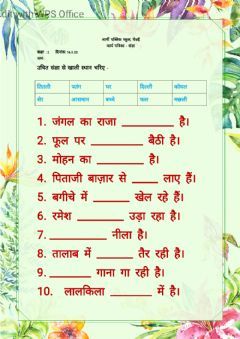 Edit with WPS Office
आर्मी पब्लिक स्कूल,
कार्य पत्रिका - संज्ञा
कक्षा : 2 दिनांक
नाम:
उचित संज्ञा से खाली स्थान भरिए -
तितली पतंग घर दिल्ली कोयल
शेर आसमान बच्चे फल मछली
1. जंगल का राजा ________ है।
2. फूल पर ________ बैठी है।
3. मोहन का ________ है।
4. पिताजी बाज़ार से _____ लाए हैं।
5. बगीचे में ______ खेल रहे हैं।
6. रमेश ______ उड़ा रहा है।
7. ________ नीला है।
8. तालाब में ______ तैर रही है।
9. ______ गाना गा रही है।
10. लालकिला ______ में है।